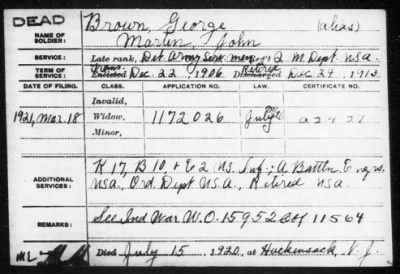 DEAD
NAME OF SOLDIER: Brown, George (alias)
Martin, John
SERVICE: Late rank, Det Army Serv. men 2 M Dept USA.
TERM OF SERVICE: Enlisted Dec. 22, 1906. Retired Discharged Dec 24, 1912
DATE OF FILING. CLASS. APPLICATION NO. LAW. CERTIFICATE NO.
Invalid,
1921, Mar. 18 Widow, 1172026 July
Minor,
ADDITIONAL SERVICES: K 17, B 10, & E 2 US. Inf.; A Battln. Engrs.
USA, Ord. Dept USA, Retired USA.
REMARKS: See Ind War W.O. 15952 11564
Died July 15, 1920, at Hackensack, N. J.